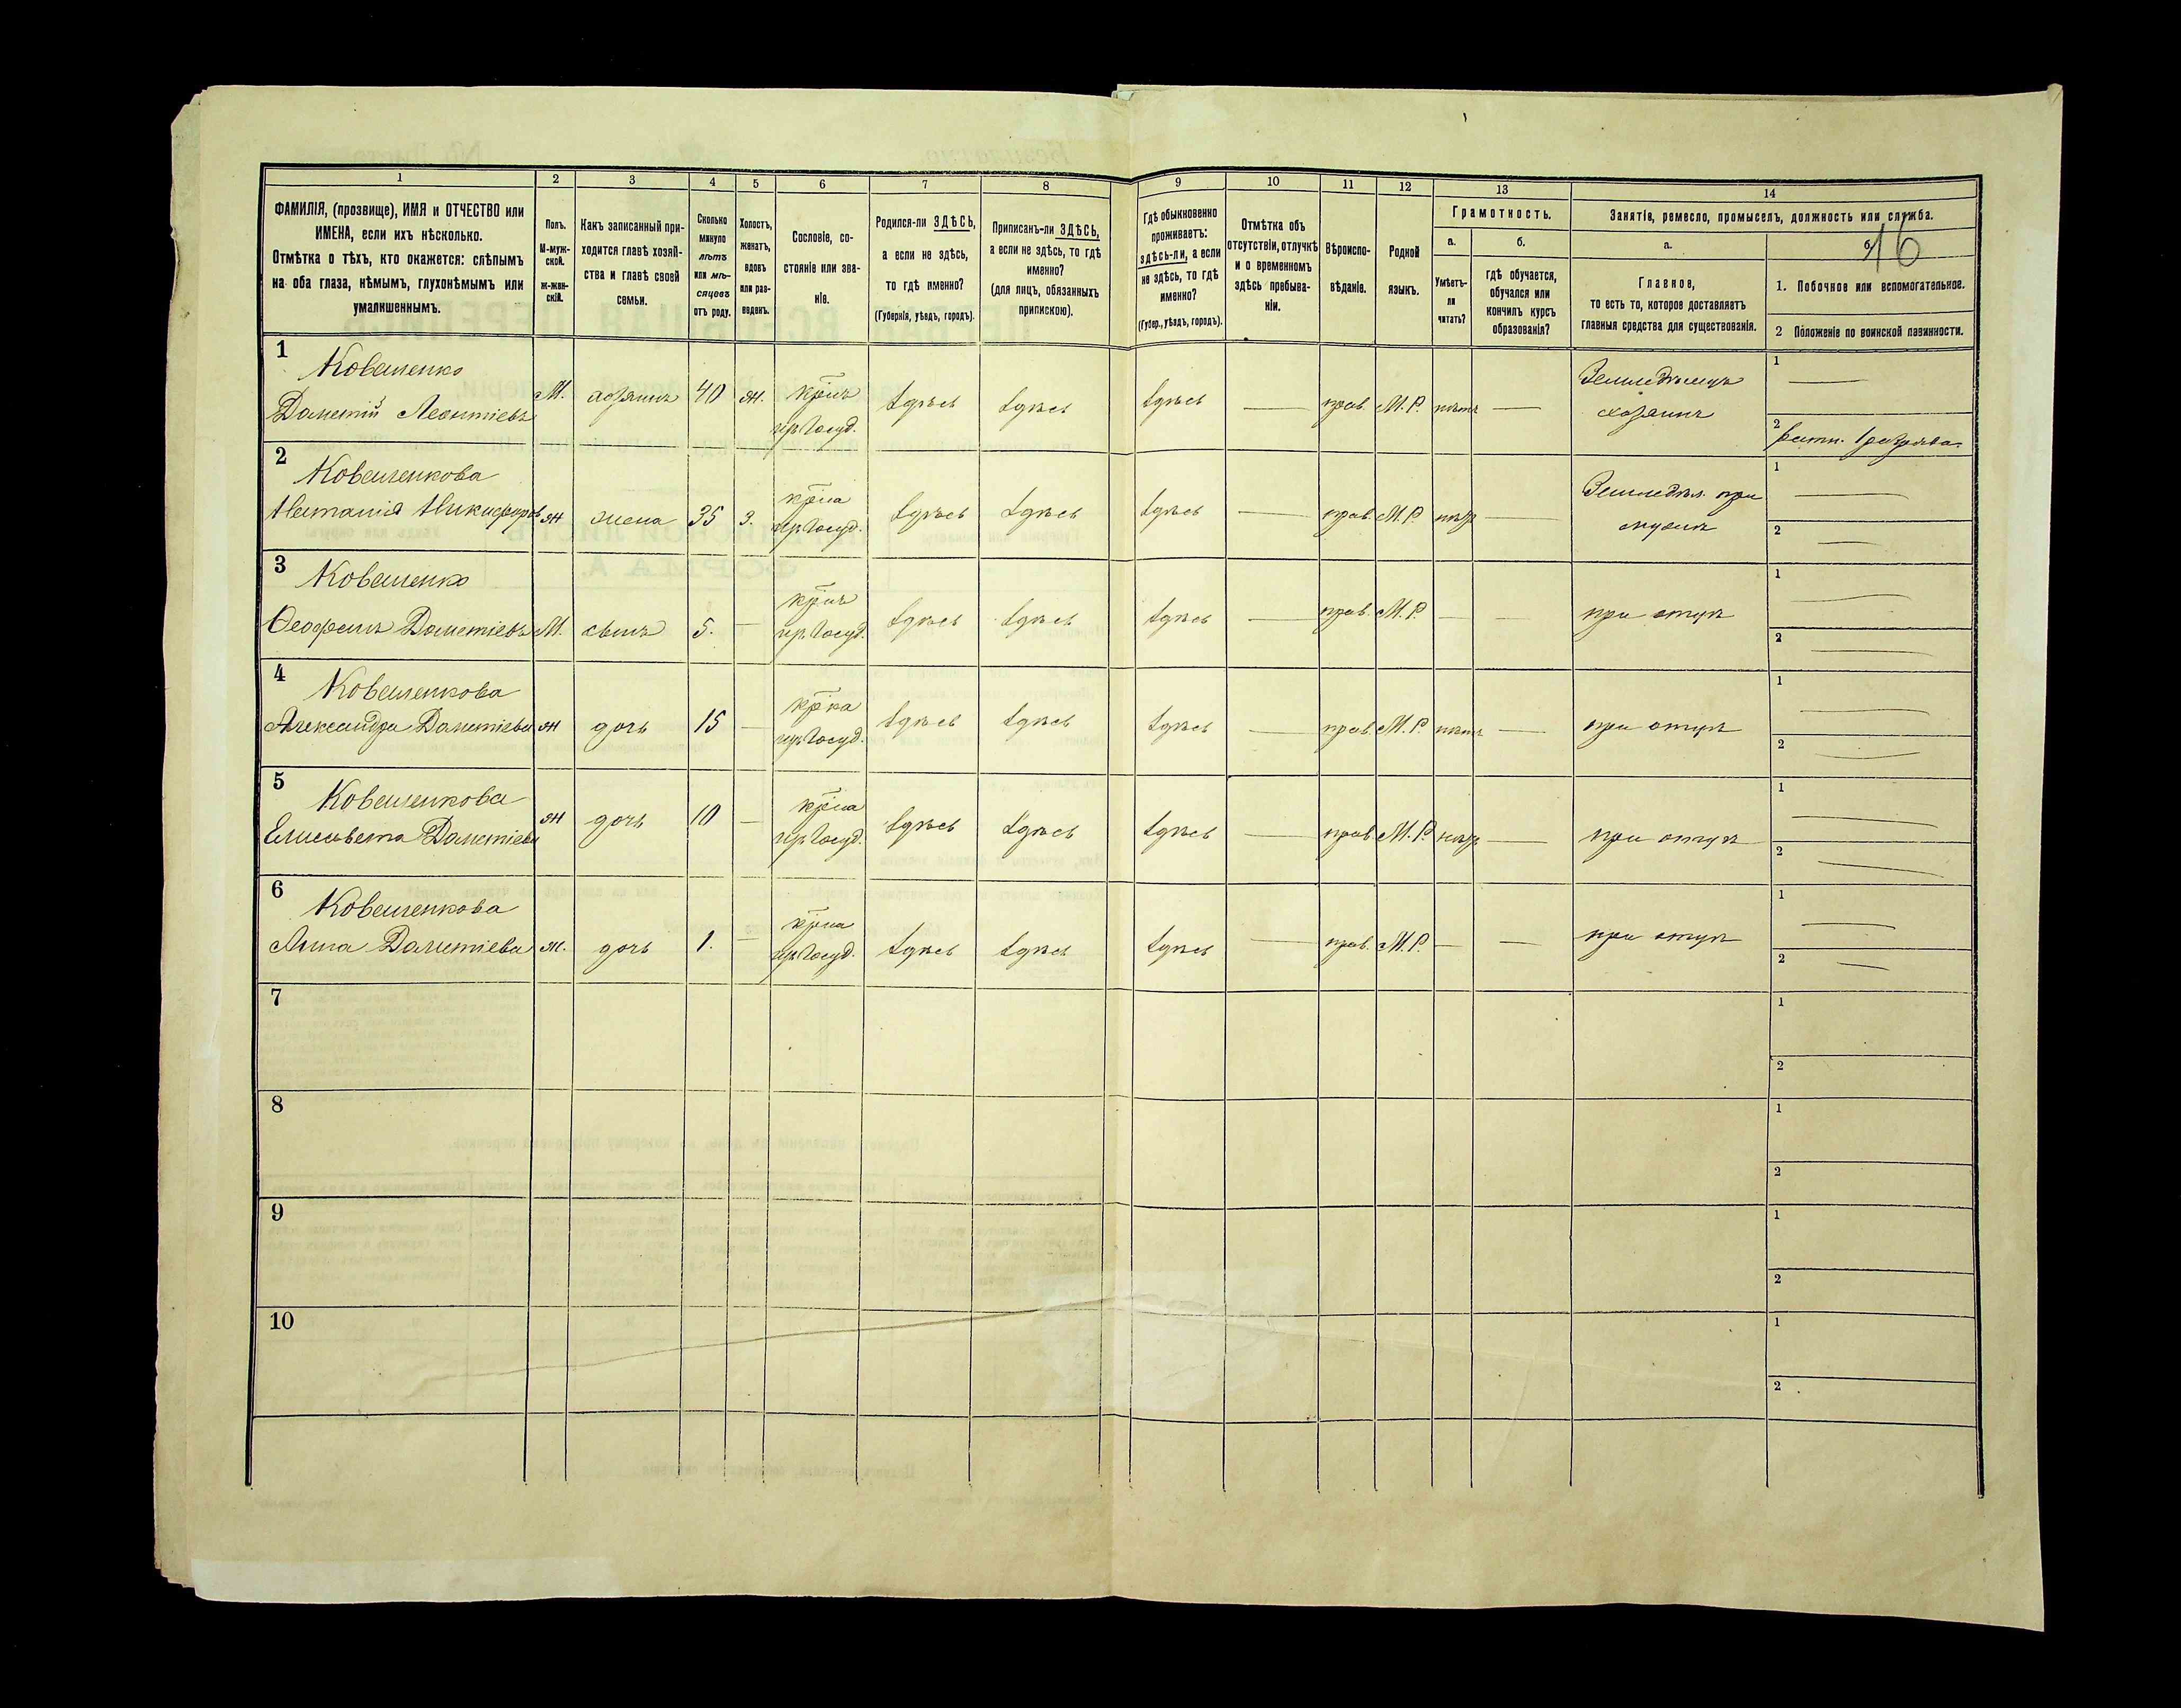 1 2 3 4 5 6 7 8 9 10 11 12 13 14
ФАМИЛІЯ, (прозвище), ИМЯ и ОТЧЕСТВО или
ИМЕНА, если ихъ нѣсколько.
Отмѣтка о тѣхъ, кто окажется: слѣпымъ
на оба глаза, нѣмымъ, глухонѣмымъ или
умалишеннымъ.
Полъ.
М-муж-
ской.
ж-жен-
скій.
Какъ записанный при-
ходится главѣ хозяй-
ства и главѣ своей
семьи.
Сколько
минуло
лѣтъ
или мѣ-
сяцевъ
отъ роду.
Холостъ,
женатъ,
вдовъ
или раз-
веденъ.
Сословіе, со-
стояніе или зва-
ніе.
Родился-ли ЗДѢСЬ,
а если не здѣсь,
то гдѣ именно?
(Губернія, уѣздъ, городъ).
Приписанъ-ли ЗДѢСЬ,
а если не здѣсь, то гдѣ
именно?
(для лицъ, обязанныхъ
припискою).
Гдѣ обыкновенно
проживаетъ:
здѣсь-ли, а если
не здѣсь, то гдѣ
именно?
(Губер., уѣздъ, городъ).
Отмѣтка объ
отсутствіи, отлучкѣ
и о временномъ
здѣсь пребыва-
ніи.
Вѣроиспо-
вѣданіе.
Родной
языкъ.
Грамотность.
а. б.
Умѣетъ-
ли
читать?
гдѣ обучается,
обучался или
кончилъ курсъ
образованія?
Занятіе, ремесло, промыселъ, должность или служба.
а. б.
16
Главное,
то есть то, которое доставляетъ
главныя средства для существованія.
1. Побочное или вспомогательное.
2 Положеніе по воинской повинности.
1 Ковешенко
Дометій Леонтіевъ М. хозяинъ 40 ж. кр̅инъ здѣсь здѣсь здѣсь — прав. М.Р. нѣтъ — Земледѣлецъ 1 —
хозяинъ
2 Ратн. 1 разряда.
2 Ковешенкова
Наталія Никифоров ж жена 35 з. здѣсь здѣсь здѣсь — прав. М.Р. — Земледѣл. при 1 —
мужѣ 2 —
3 Ковешенко
Ѳеофанъ Дометіевъ М. сынъ 5. — здѣсь здѣсь здѣсь — прав. М.Р. — — при отцѣ 1 —
2 —
4 Ковешенкова
Александра Дометіева ж дочь 15 — здѣсь здѣсь здѣсь — прав. М.Р. нѣтъ — при отцѣ 1 —
2 —
5 Ковешенкова
Елисавета Дометіева ж дочь 10 — здѣсь здѣсь здѣсь — прав. М.Р. — при отцѣ 1 —
2 —
6 Ковешенкова
Анна Дометіева ж. дочь 1. — здѣсь здѣсь здѣсь — прав. М.Р. — — при отцѣ 1 —
2 —
7 1
2
8 1
2
9 1
2
10 1
2